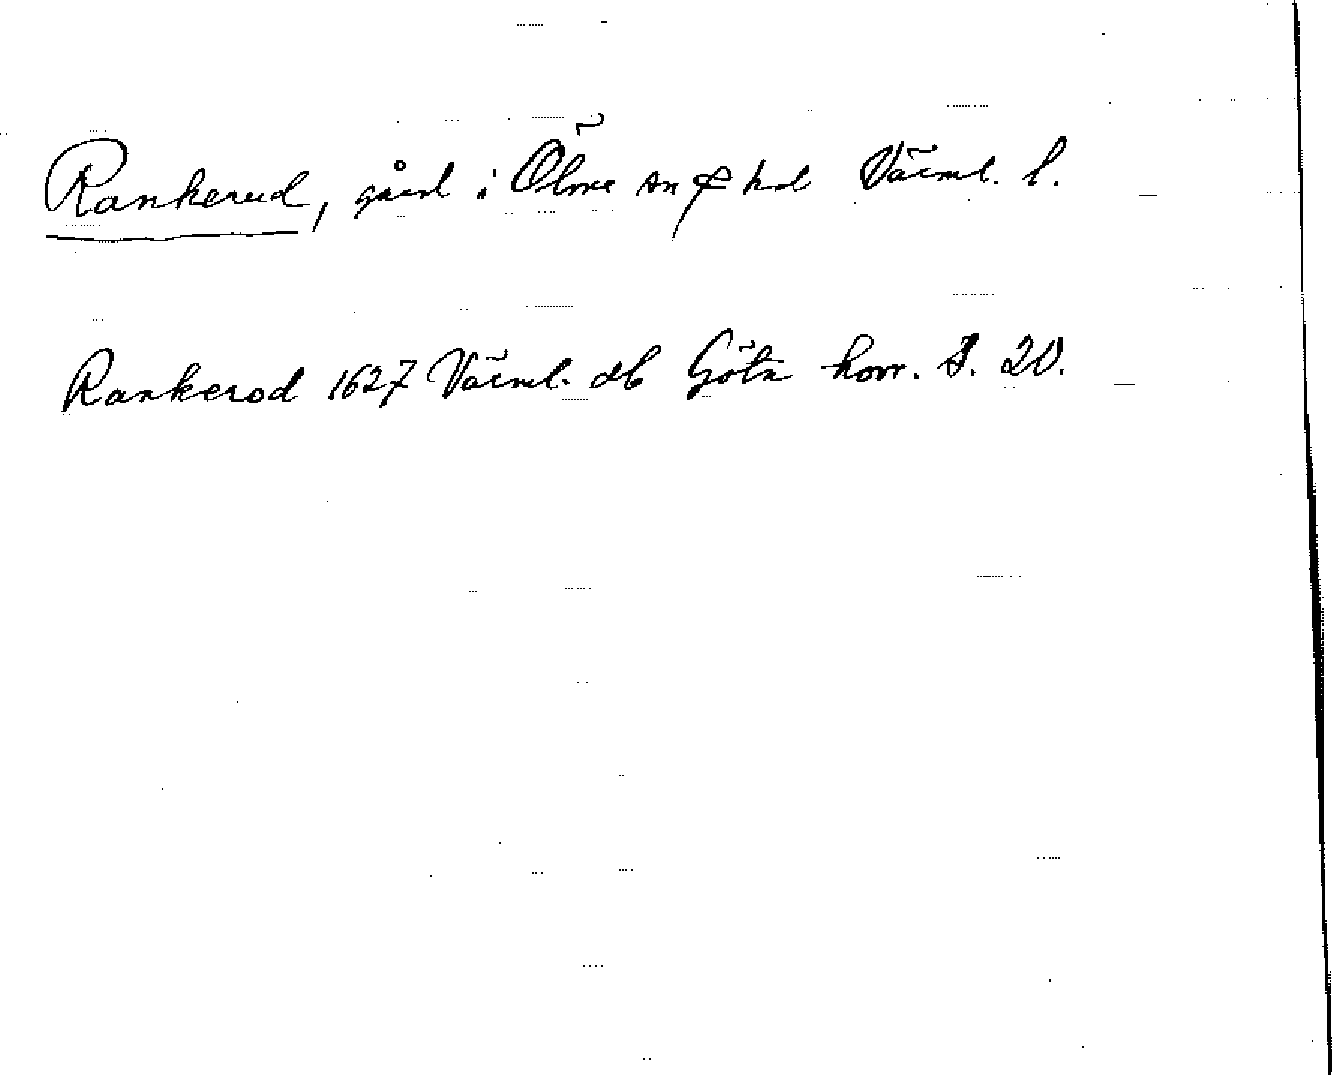 Rankerud, gård i Ölme sn o hd Värml. l.
Rankerod 1627 Värml. db Göta hovr. S. 20.